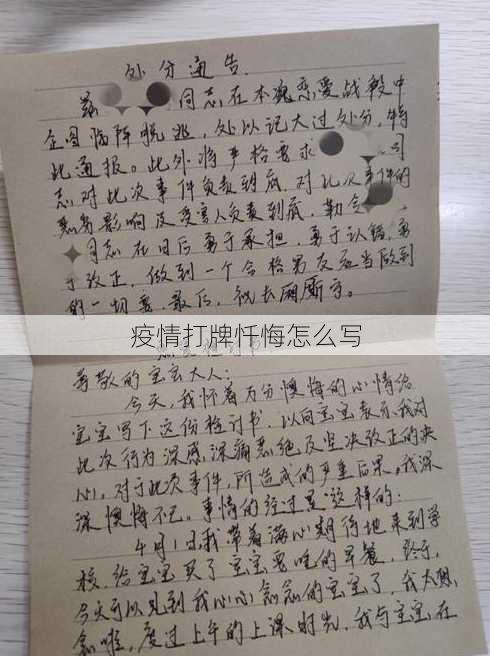 处分通告
兹 同志在本魂恋爱战役中
企图临阵脱逃，处以记大过处分，特
此通报。此外将严格要求 同
志对此次事件负责到底，对此次事件的
恶劣影响及受害人负责到底，勒令
同志在日后勇于承担，勇于认错，勇
于改正，做到一个合格男友应当做到
的一切要，最后，祝
疫情打牌忏悔怎么写
尊敬的宝宝大人：
今天，我怀着万分懊悔的心情给
宝宝写下这份检讨书，以向宝宝表示我对
此次行为深感深痛恶绝及坚决改正的决
心，对于此次事件，所造成的严重后果，我深
深懊悔不已。事情的经过是这样的：
4月1日，我带着满心期待地来到学
校，给宝宝买了宝宝要吃的早餐，
今天可以见到我心心念念的宝宝了，我太想
念啦，度过上午的上课时光，我与宝宝在